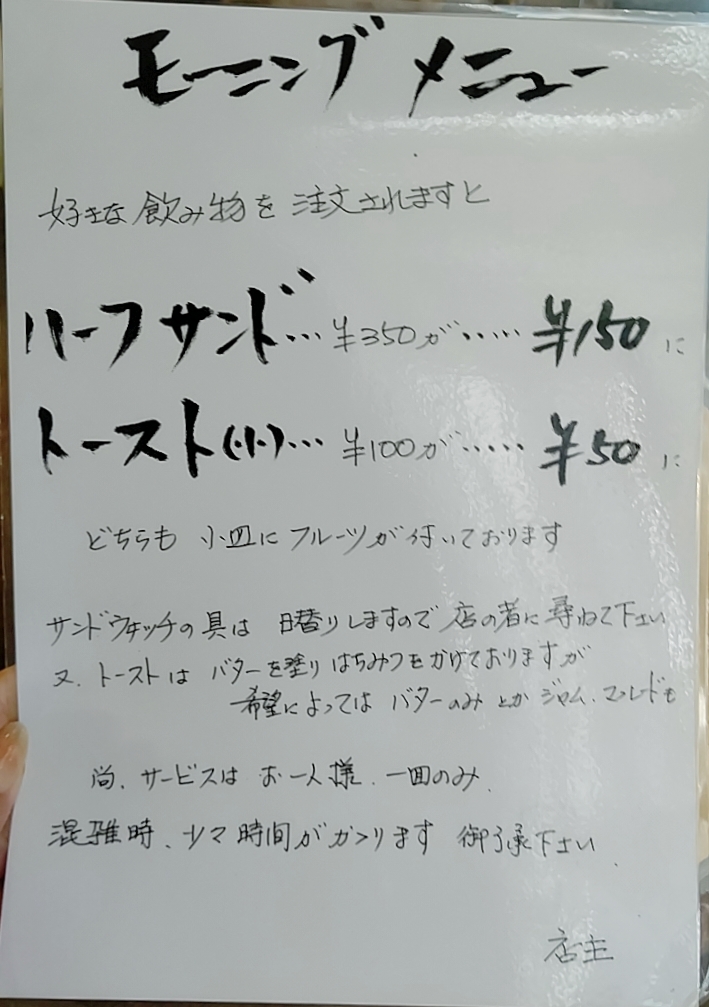 モーニング メニュー
好きな飲み物を注文されますと
ハーフサンド…¥350が……¥150に
トースト(小)…¥100が……¥50に
どちらも 小皿に フルーツが付いております
サンドウィッチの具は 日替りしますので 店の者に尋ねて下さい
又、トーストは バターを塗り はちみつをかけておりますが
希望によっては バターのみ とか ジャム、マスタードも
尚、サービスは お一人様、一回のみ、
混雑時、少々時間がかゝります 御了承下さい、
店主